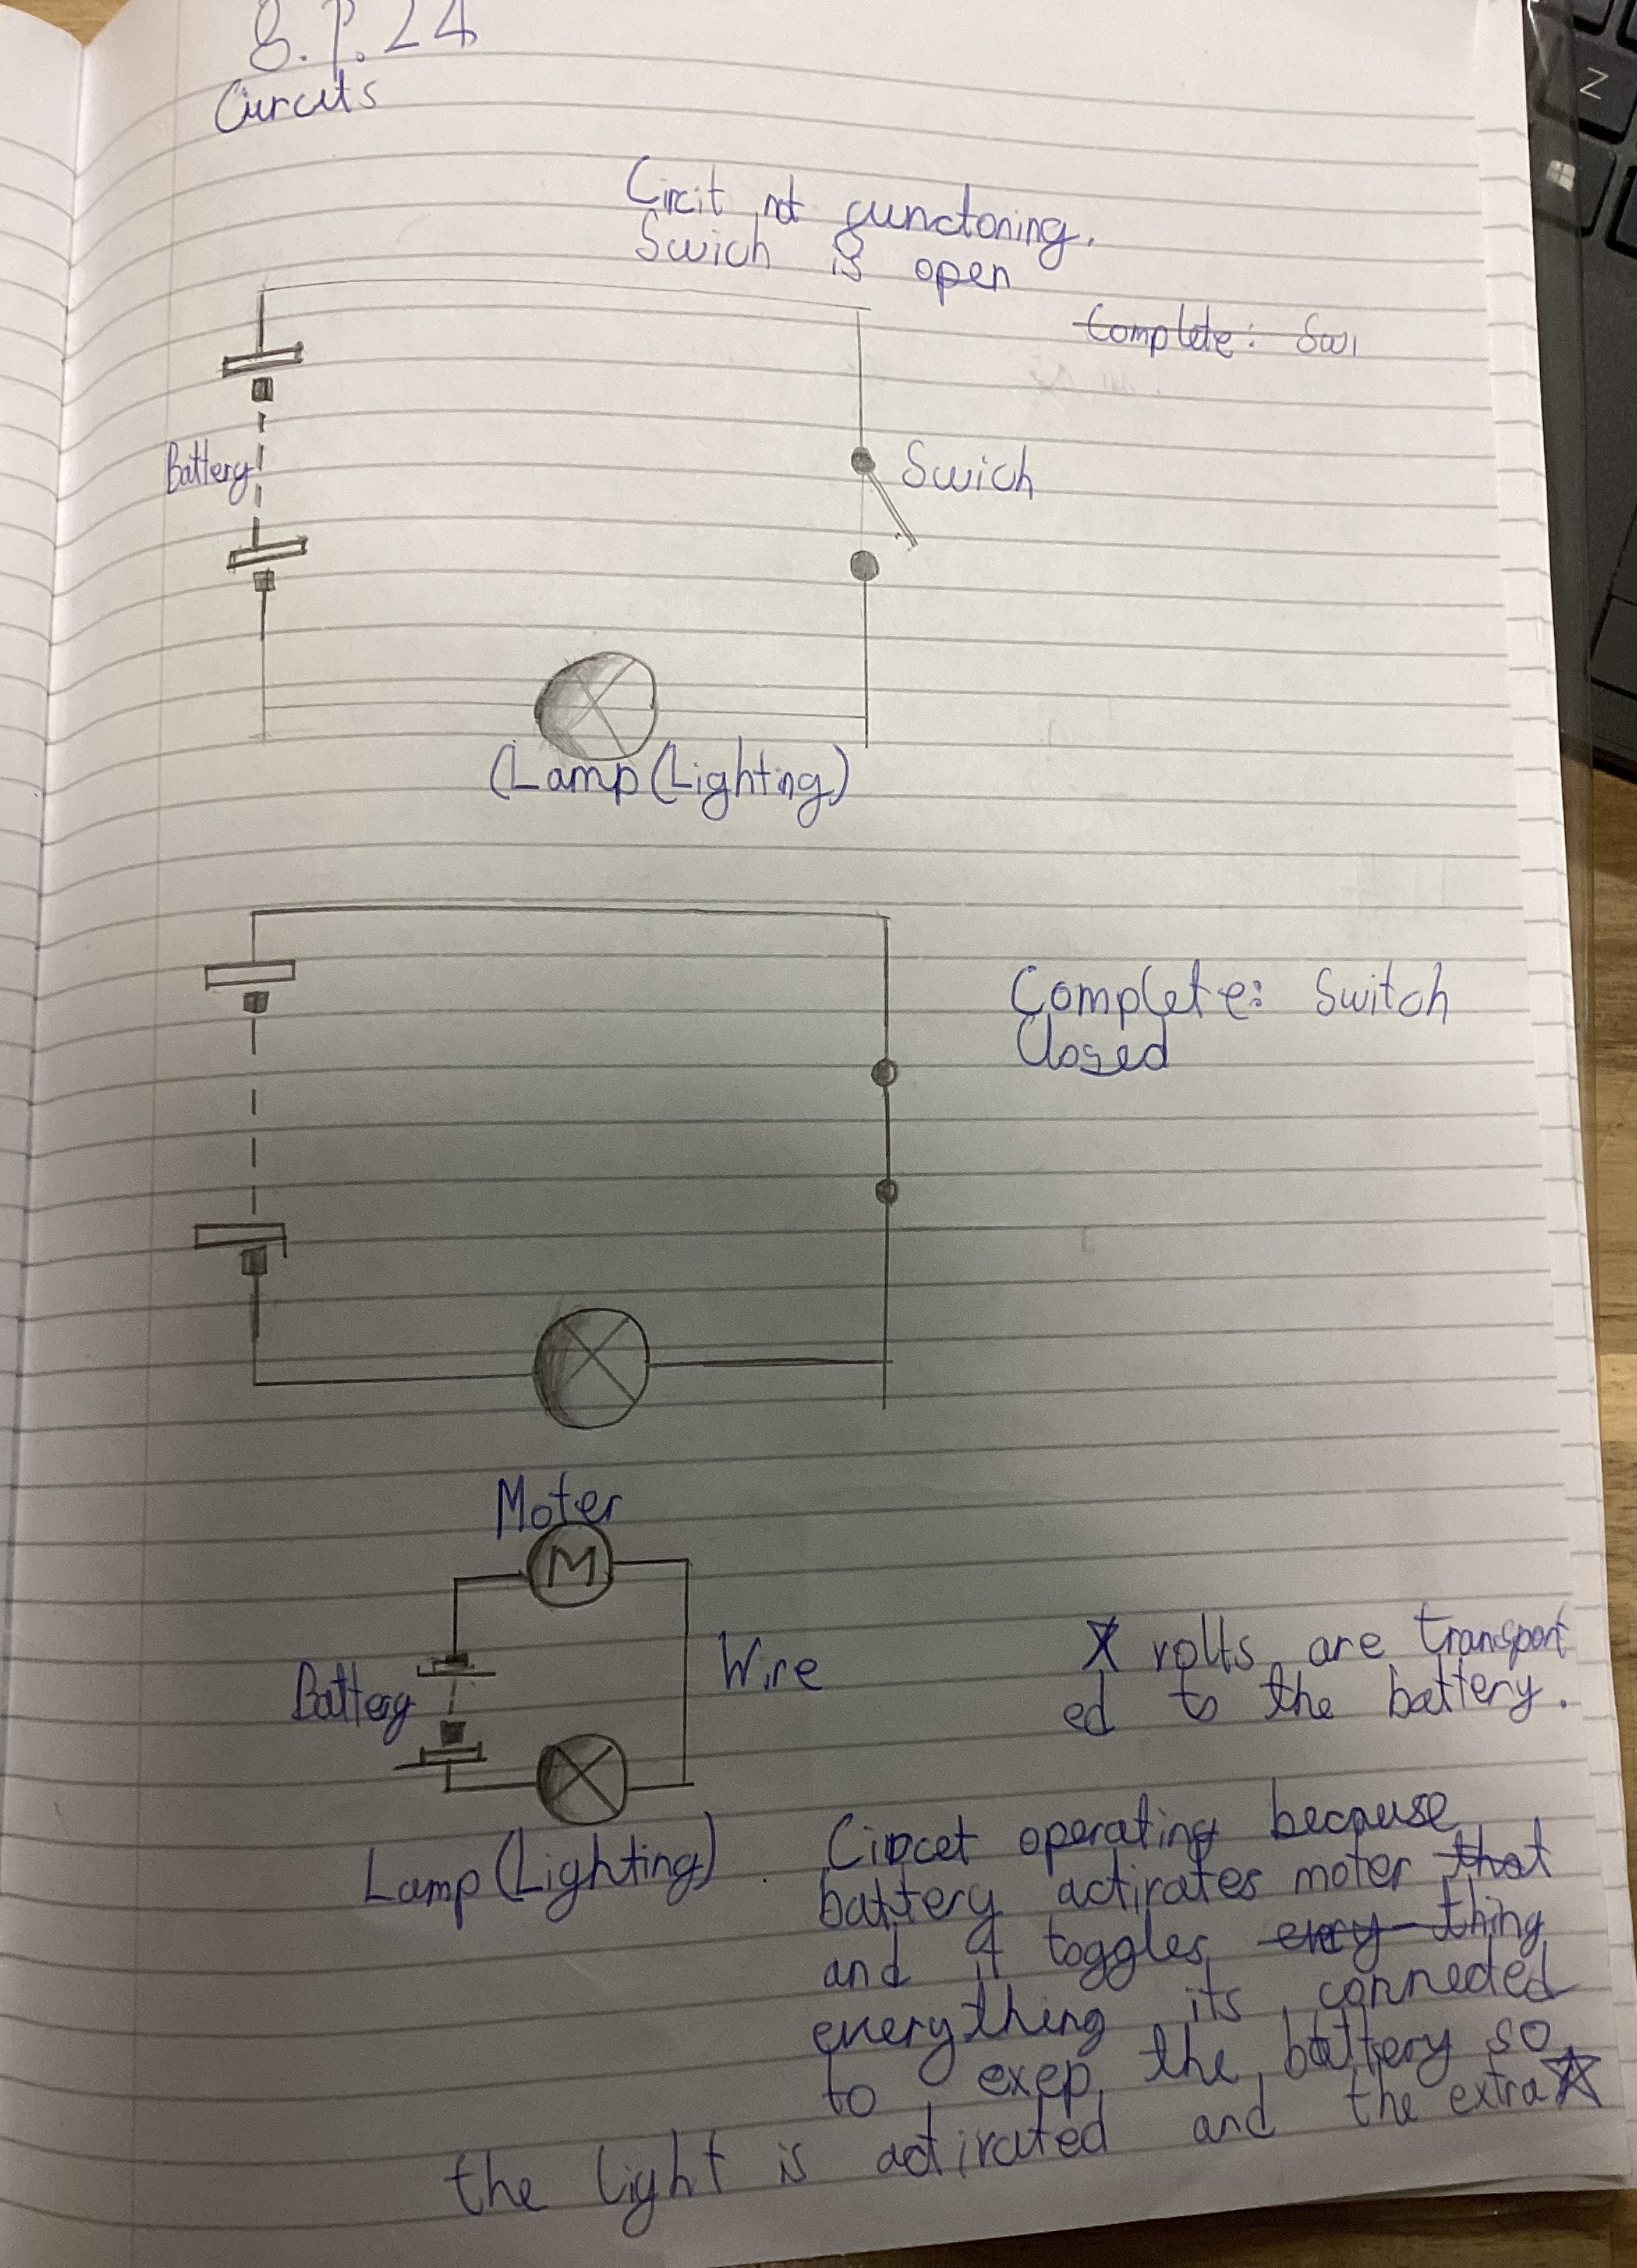 8.9.24
Circuts
Circit not functoning.
Swich is open
Complete: Swi
Battery
Swich
(Lamp (Lighting)
Complete: Switch
Closed
Moter
M
Battery
Wire
volts are transport
ed to the battery.
Lamp (Lighting)
Circet operating because
battery activates moter that
and it toggles every thing
everything its connected
to exep the battery so
the light is activated and the extra
Z